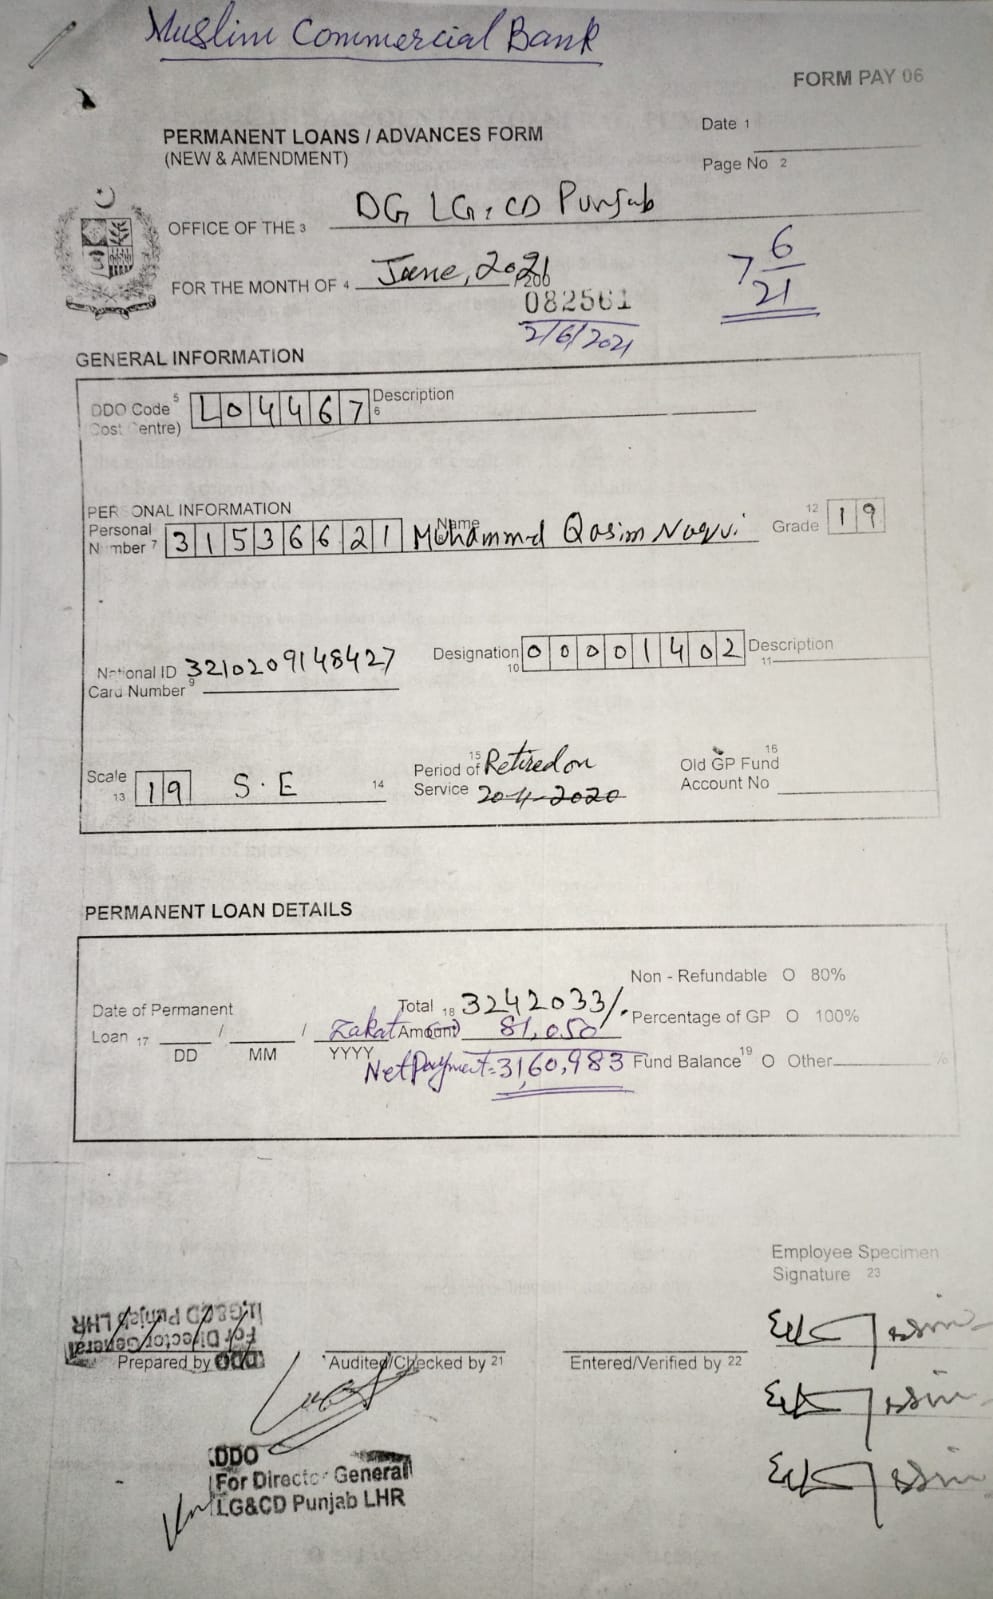 Muslim Commercial Bank
FORM PAY 06
PERMANENT LOANS / ADVANCES FORM
(NEW & AMENDMENT)
Date 1
Page No 2
OFFICE OF THE 3 DG LG & CD Punjab
FOR THE MONTH OF 4 June, 2021
082561
2/6/2021
7 6
21
GENERAL INFORMATION
DDO Code 5 L04467 Description 6
Cost Centre)
PERSONAL INFORMATION
Personal Number 7 31536621 Name Mohammad Qasim Naqvi 12 Grade 19
National ID Card Number 9 3210209148427 Designation 10 00001402 Description 11
Scale 13 19 S.E 14 Period of Service 15 Retired on 20-11-2020 Old GP Fund Account No 16
PERMANENT LOAN DETAILS
Non - Refundable O 80%
Date of Permanent Total 18 3242033/-
Loan 17 / / Zakat Amount 81,050 Percentage of GP O 100%
DD MM YYYY Net Payment = 3160,983 Fund Balance 19 O Other %
Employee Specimen
Signature 23
LG&CD Punjab LHR
For Director General
DDO
Prepared by Audited/Checked by 21 Entered/Verified by 22
DDO
For Director General
LG&CD Punjab LHR